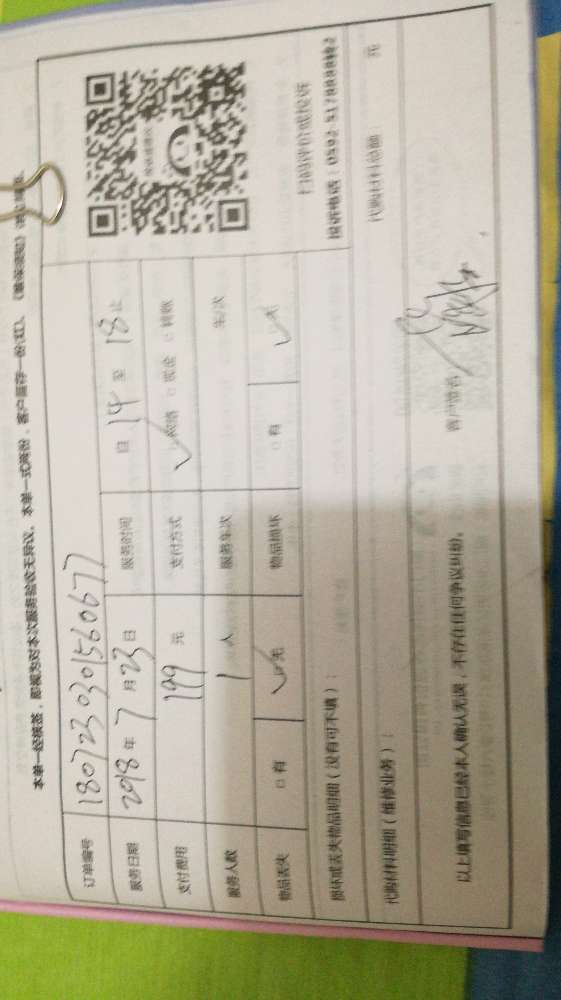 本单一经接签，即视为对本次服务验收无异议。本单一式两份，客户留存一份(红)。
订单编号 180723030156067​7
服务日期 2018 年 7 月 23 日 服务时间 自 14 至 18 止
支付费用 199 元 支付方式 ✓网络 □现金 □转账
服务人数 1 人 服务车次 车/次
物品丢失 □有 ✓无 物品损坏 □有 ✓无
扫码评价或投诉
投诉电话：0592
损坏或丢失物品明细（没有可不填）：
代购材料明细（维修业务）： 代购材料总额： 元
以上填写信息已经本人确认无误，不存在任何争议纠纷。 客户签名